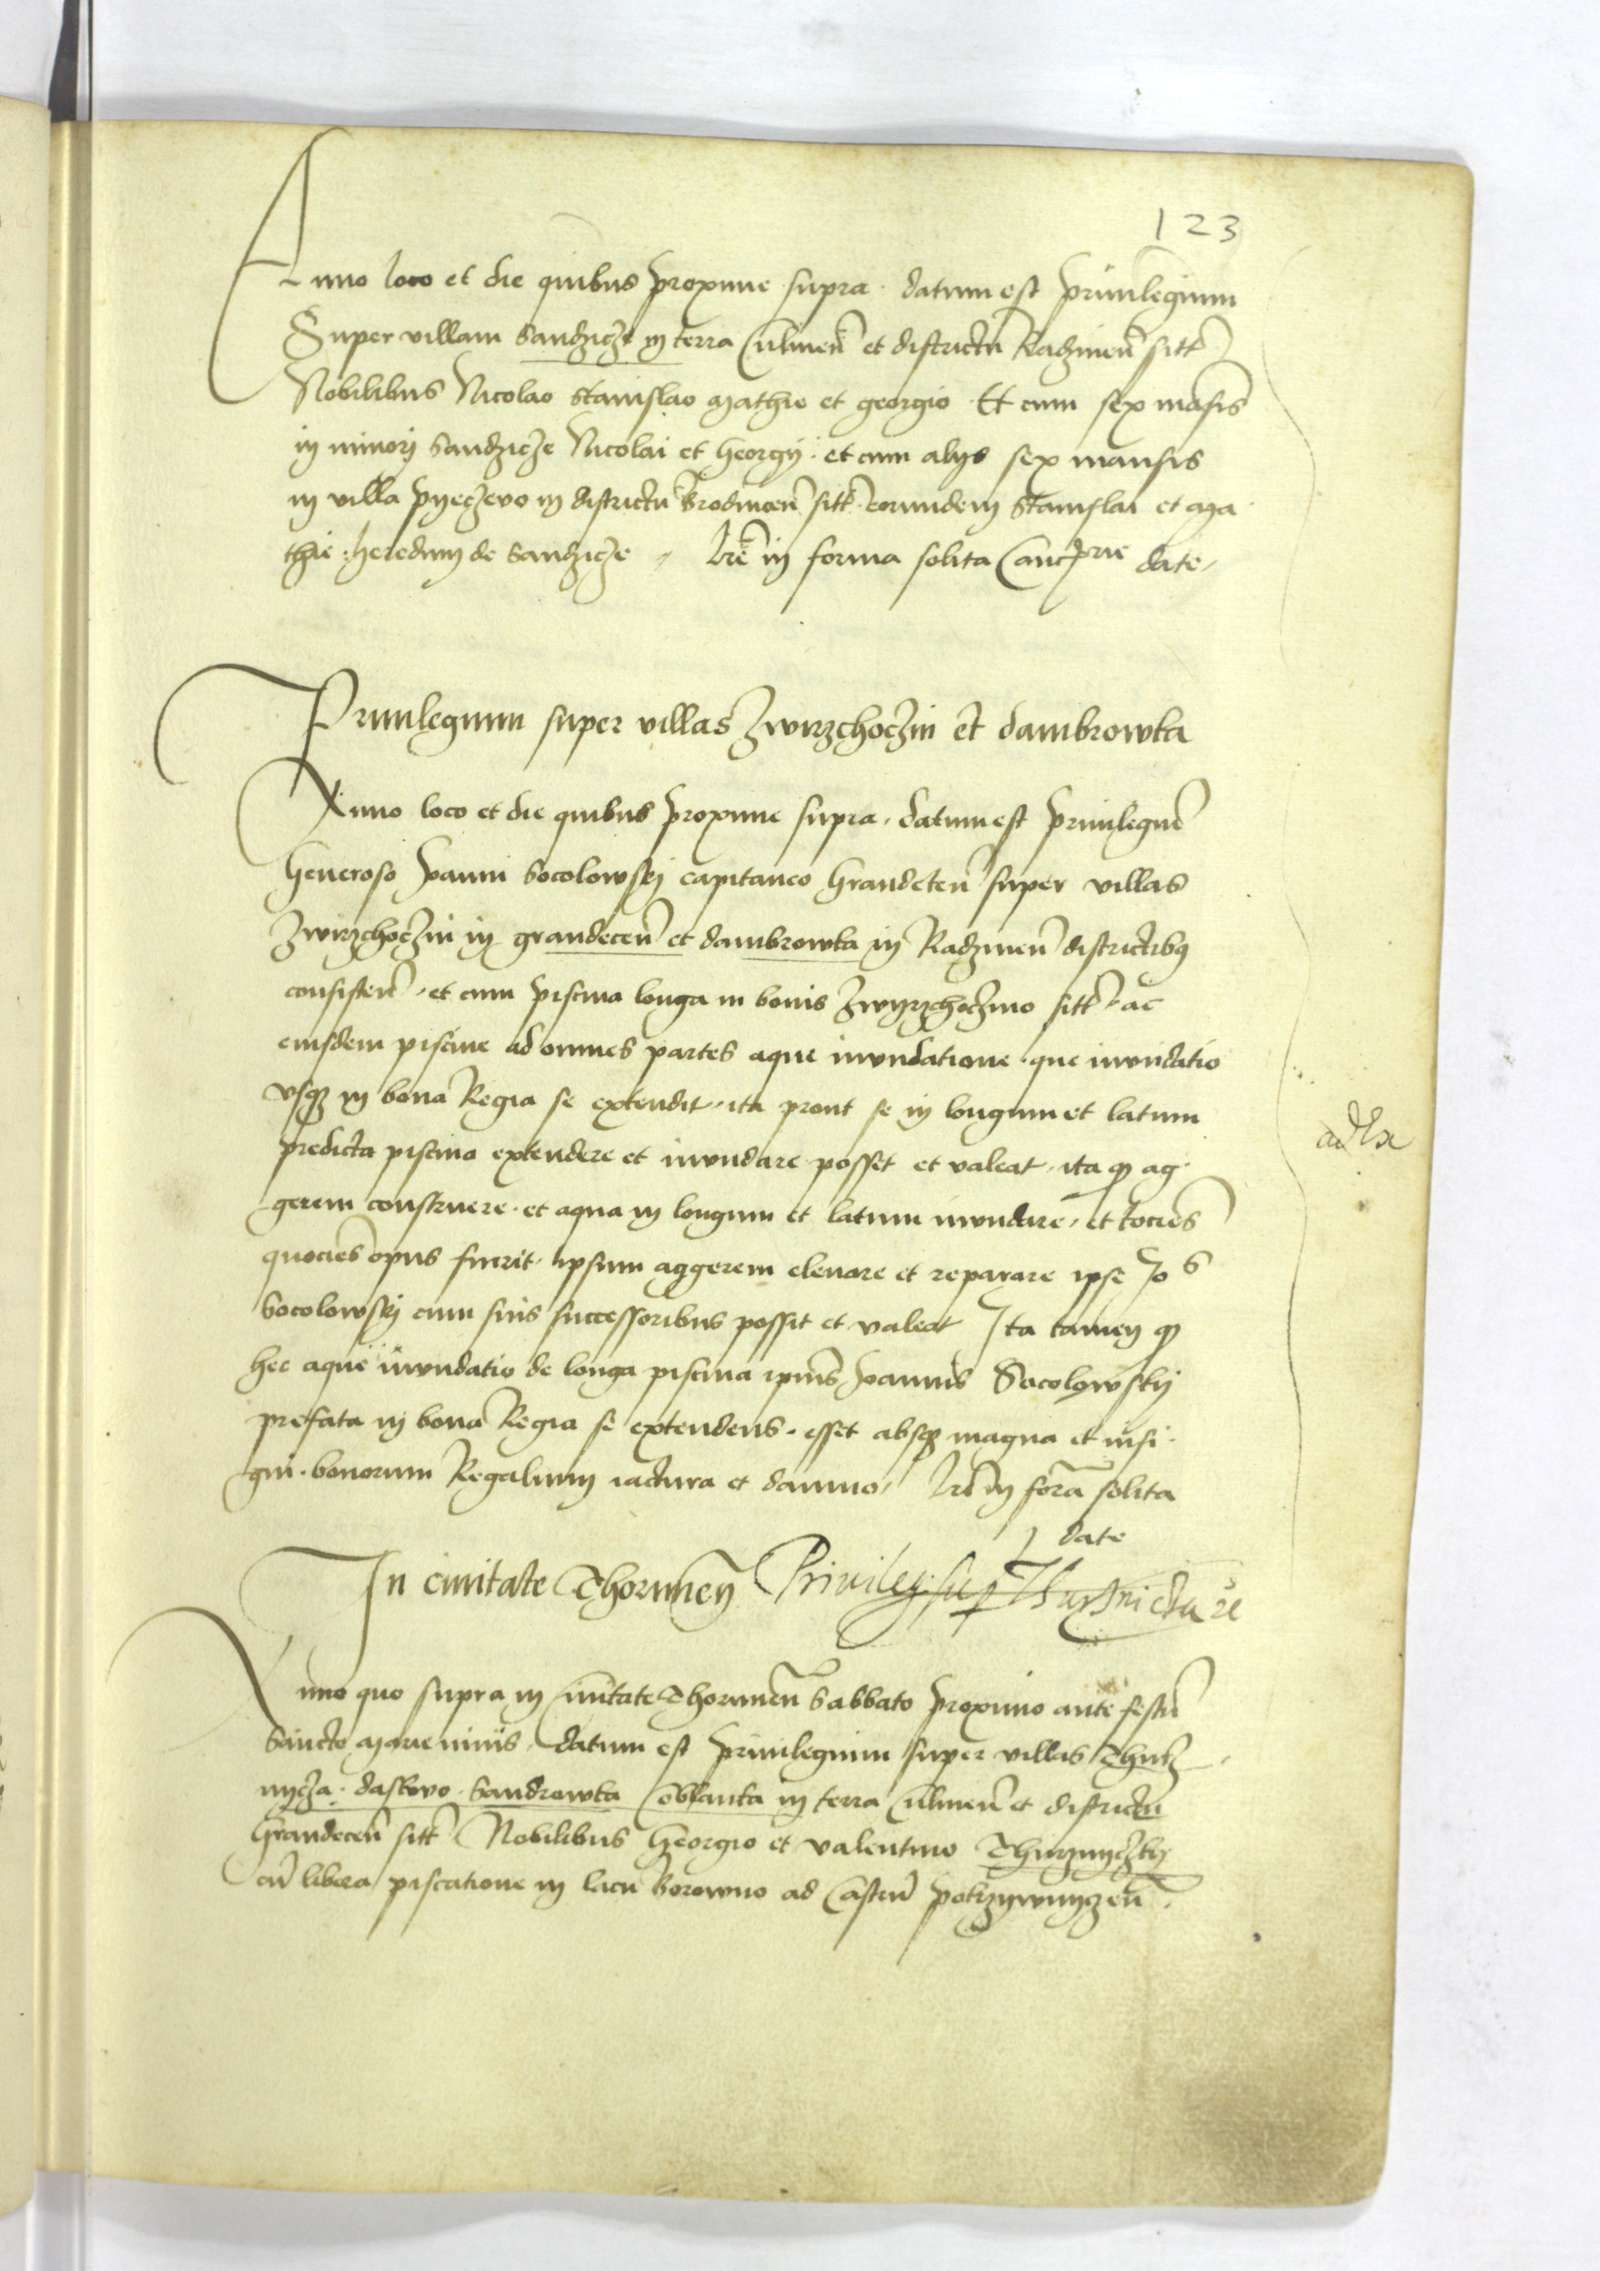 123
Anno loco et die quibus proxime supra datum est priuilegium
Super villam Sandzicze in terra Culmen̄ et districtu Radzinen̄ sitt̄
Nobilibus Nicolao Stanislao Mathie et georgio Et cum sex mansis
in minori Sandzicze Nicolai et Georgij et cum alijs sex mansis
in villa pyeczewo in districtu Brodnicen̄ sitt̄ eorundem Stanislai et Ma
thie heredum de Sandzicze Lr̄e in forma solita Canc̄rie date
Priuilegium super villas Zwirzchoczin et dambrowka
Anno loco et die quibus proxime supra datum est priuilegiū
Generoso Joanni Socolowskj capitaneo Graudeten̄ super villas
Zwirzchoczin in graudecen̄ et dambrowka in Radzinen̄ districtibꝰ
consisten̄ et cum piscina longa in bonis Zwyrzchoczino sitt̄ ac
eiusdem piscine ad omnes partes aque inundatione que inundatio
vsqꝫ in bona Regia se extendit ita prout se in longum et latum
predicta piscina extendere et inundare posset et valeat ita ꝙ ag
gerem construere et aqua in longum et latum inundare et tociens
quociens opus fuerit ipsum aggerem eleuare et reparare ipse Jo s
Socolowskj cum suis successoribus possit et valeat Ita tamen ꝙ
hec aque inundatio de longa piscina ipius Joannis Socolowskij
prefata in bona Regia se extendens esset absqꝫ magna et insi
gni bonorum Regalium iactura et damno Lr̄e in forā solita
date
adlx
In ciuitate Thorunen̄ Priuileg: sup
Anno quo supra in Ciuitate Thorunen̄ Sabbato proximo ante festū
Sancte Marie niuis datum est priuilegium super villas
nycza daskowo Sandrowka in terra Culmen̄ et districtu
Graudecen̄ sitt̄ Nobilibus Georgio et valentino
cū libera piscatione in lacu Borowno ad Castrū